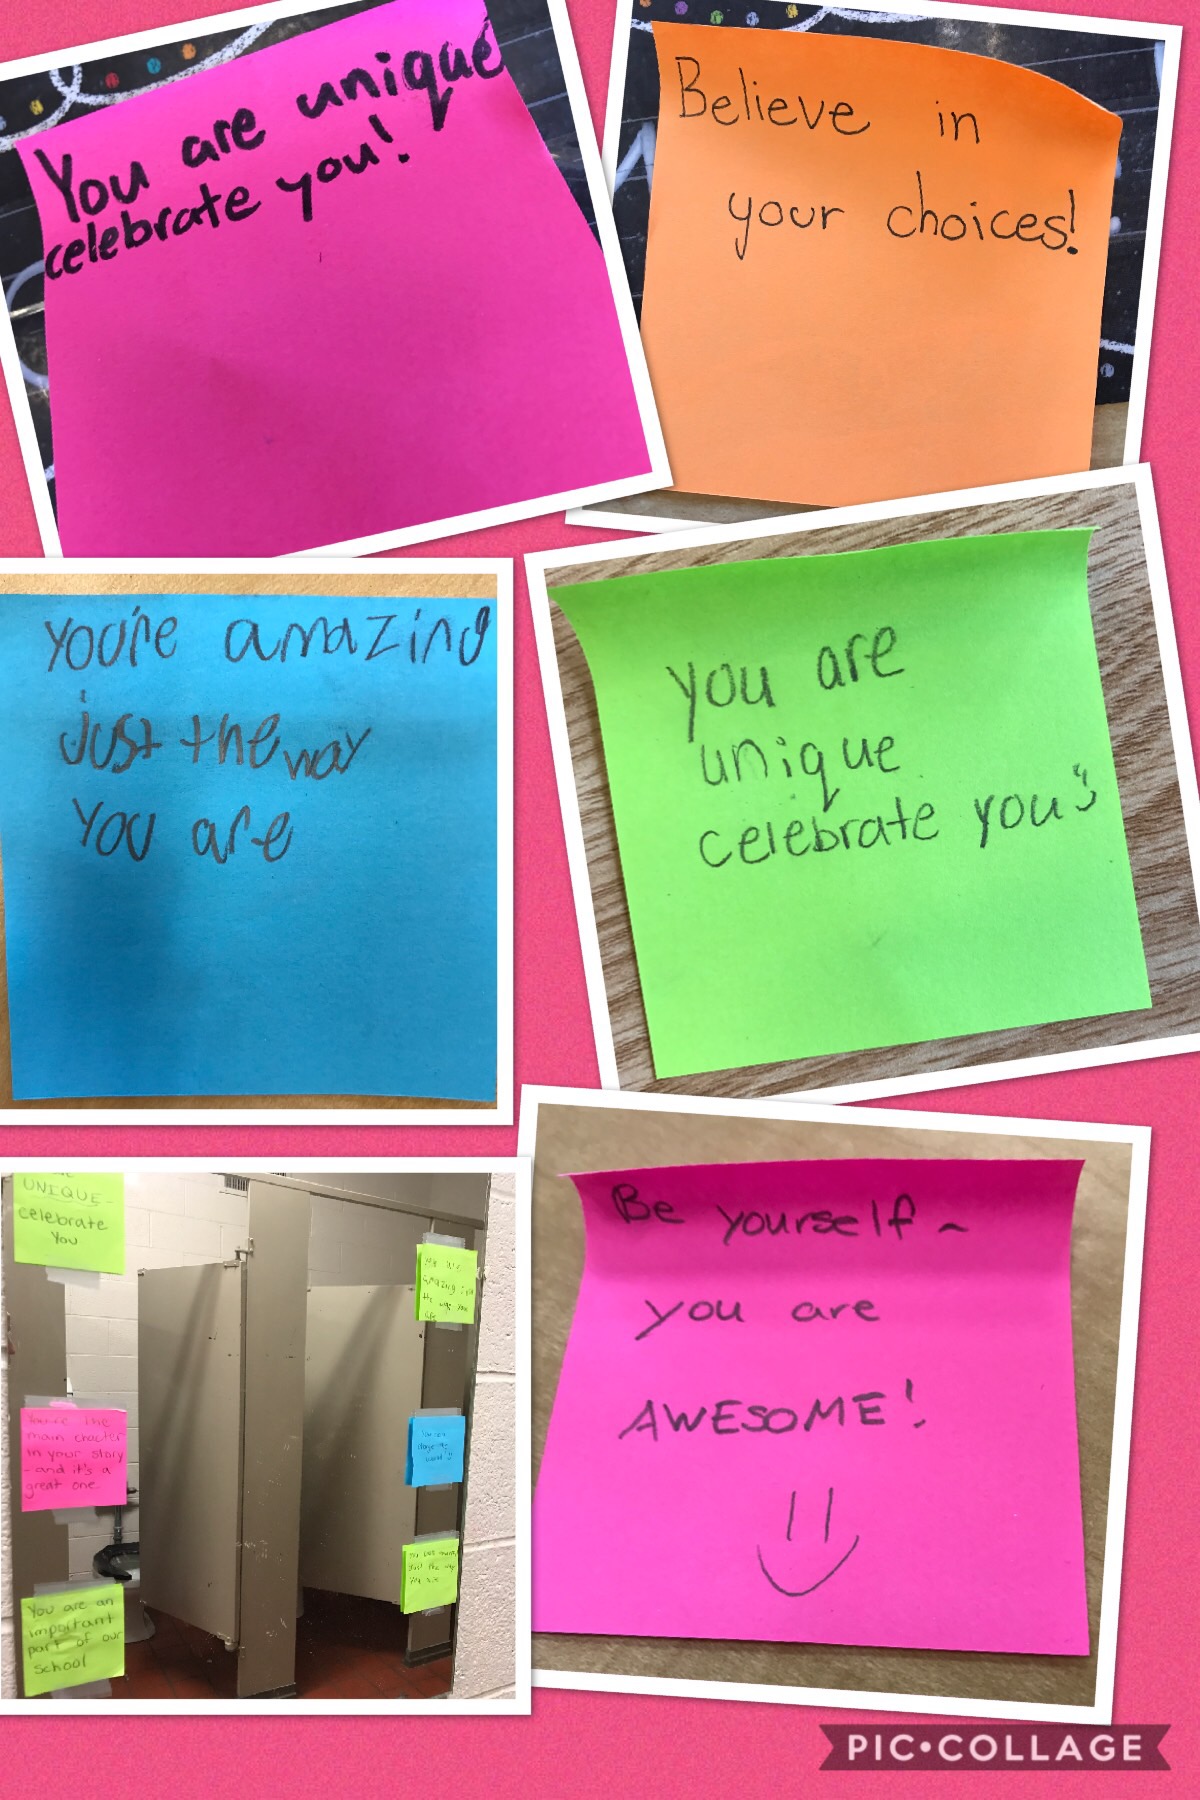 You are unique
celebrate you!
Believe in
your choices!
you're amazing
just the way
you are
you are
unique
celebrate you
UNIQUE
celebrate
You
You're the
main chacter
in your story
-and it's a
great one.
You are an
important
part of our
school
amazing just
the way you
are
just the way
you are
Be yourself ~
you are
AWESOME!
PIC•COLLAGE